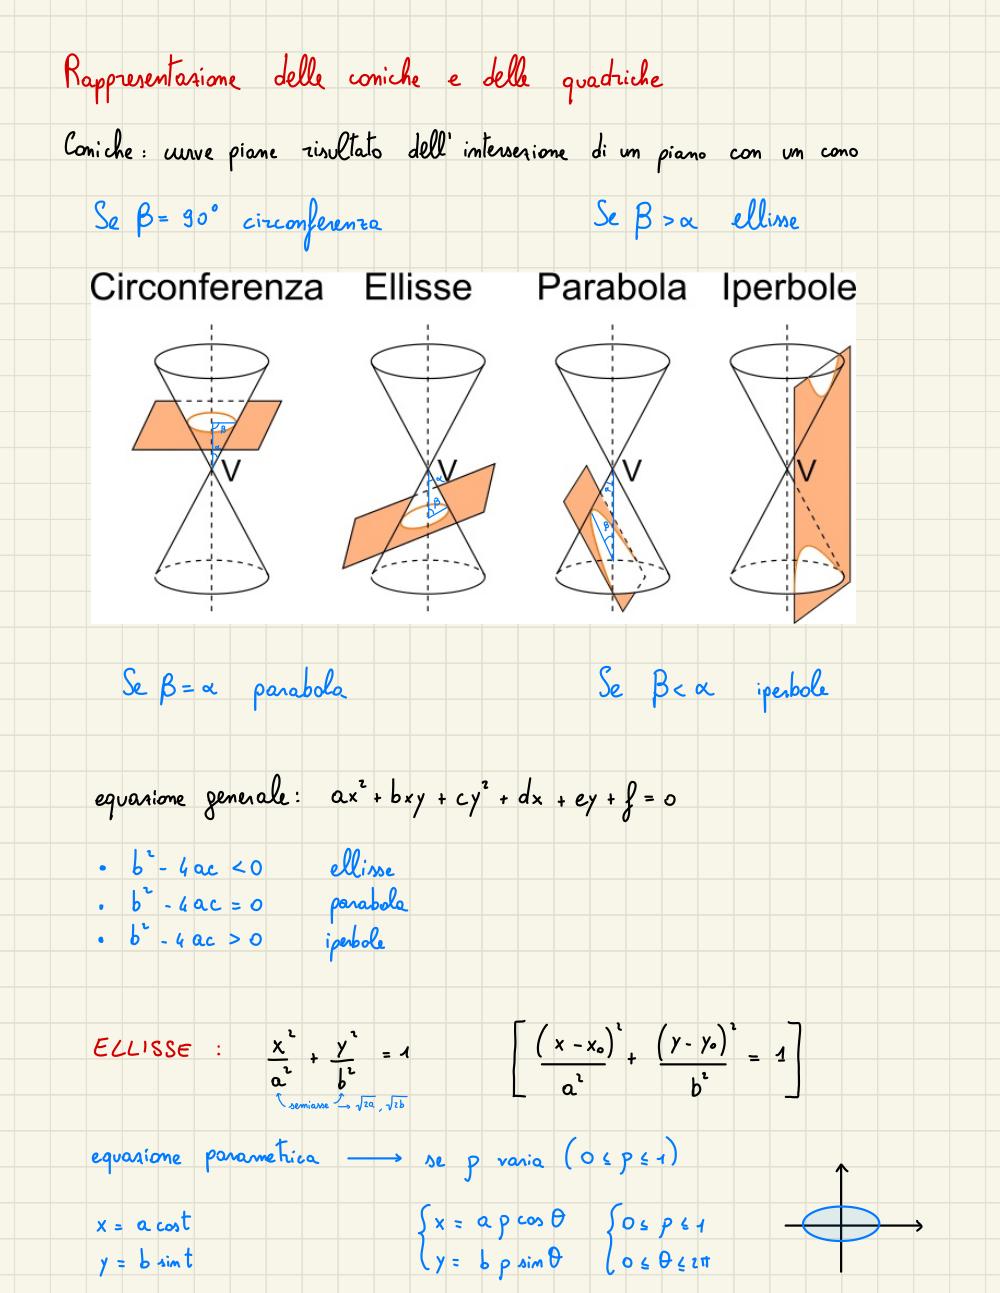 Rappresentazione delle coniche e delle quadriche
Coniche: curve piane risultato dell'intersezione di un piano con un cono
Se β = 90° circonferenza
Se β > α ellisse
Circonferenza Ellisse Parabola Iperbole
β
α
V
α
β
V
α
β
V
V
Se β = α parabola
Se β < α iperbole
equazione generale: ax² + bxy + cy² + dx + ey + f = 0
• b² - 4ac < 0 ellisse
• b² - 4ac = 0 parabola
• b² - 4ac > 0 iperbole
ELLISSE : x²/a² + y²/b² = 1 [(x - x₀)²/a² + (y - y₀)²/b² = 1]
semiasse → √2a, √2b
equazione parametrica → se ρ varia (0 ≤ ρ ≤ 1)
x = a cos t
y = b sin t
{ x = a ρ cos θ { 0 ≤ ρ ≤ 1
y = b ρ sin θ 0 ≤ θ ≤ 2π